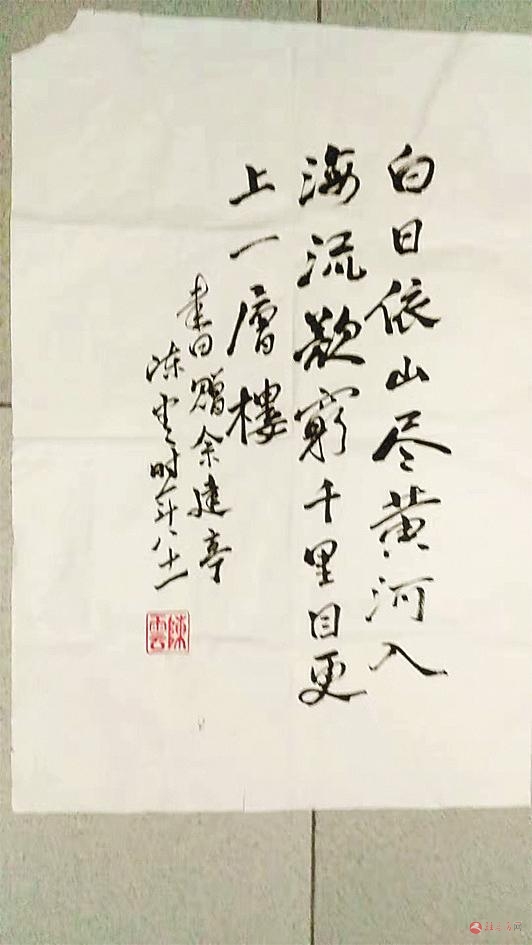 白日依山尽黄河入
海流欲窮千里目更
上一層樓
書赠余建亭
陈雲时年八十一
陳雲